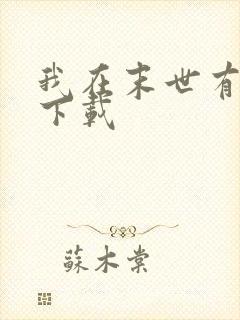 我在末世有
下载
蘇木棠